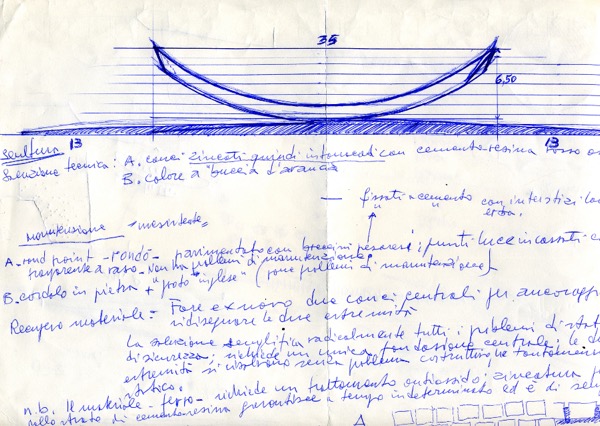 35
6,50
13
13
scultura
Soluzione tecnica: A. conci zincati quindi intonacati con cemento-resina rosso
B. colore a "buccia d'arancia
— fissati a cemento con interstizi
erba.
manutenzione = inesistente =
A. rond point - rondò - pavimentato con pesaresi; punti luce incassati
a raso. Non ha problemi di manutenzione;
B. cordolo in pietra + "prato inglese" (pone problemi di manutenzione)
Recupero materiale = Fare ex novo due conci centrali per
ridisegnare le due estremità
La soluzione semplifica radicalmente tutti i problemi di
di sicurezza; richiede un'unica fondazione centrale; le
estremità si risolvono senza problema
statico.
n.b. Il materiale - ferro - richiede un trattamento antiossido; zincatura
strato di cemento resina garantisce a tempo indeterminato ed è di
A